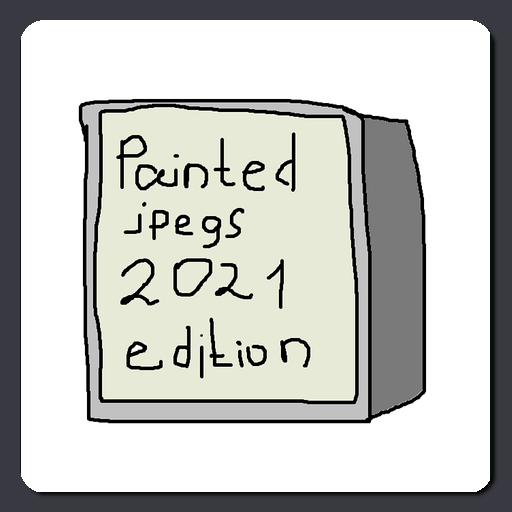 Painted
jpegs
2021
edition